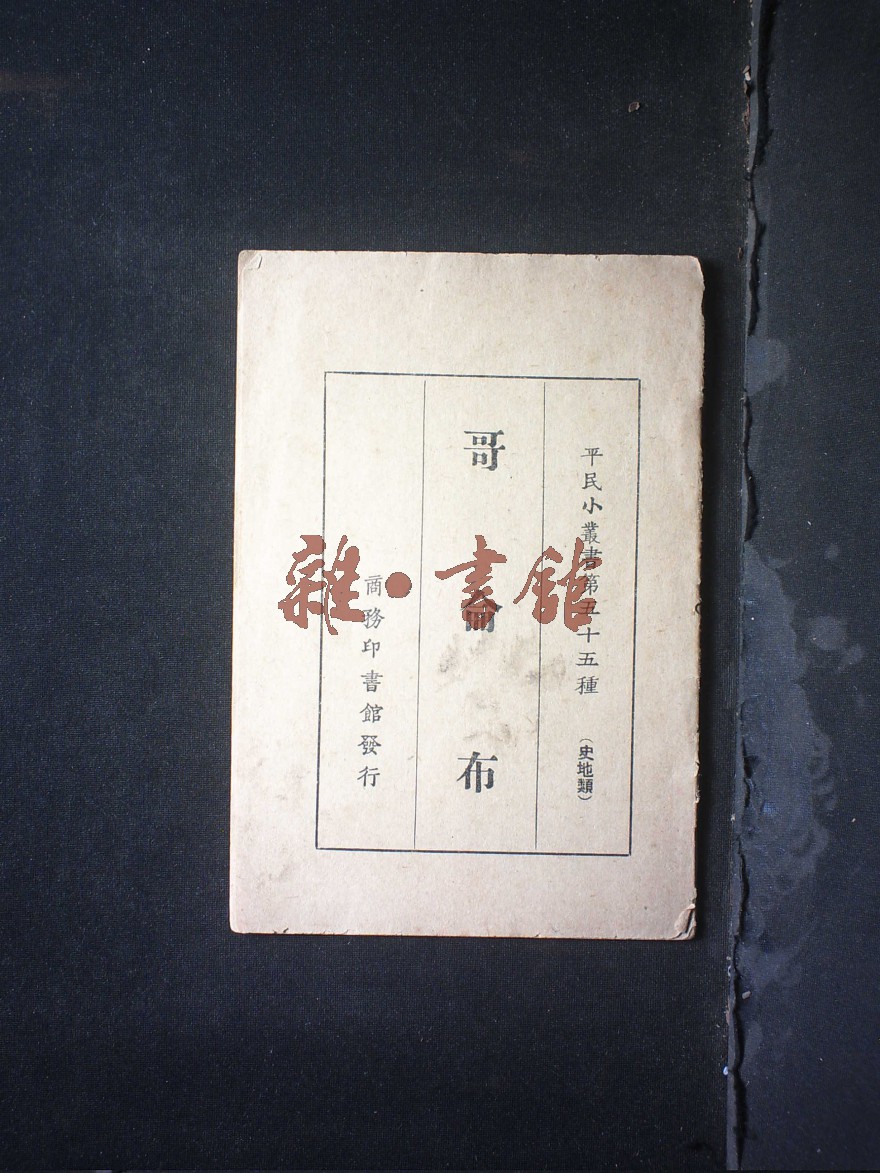 平民小叢書第五十五種 (史地類)
哥倫布
商務印書館發行
雜·書館